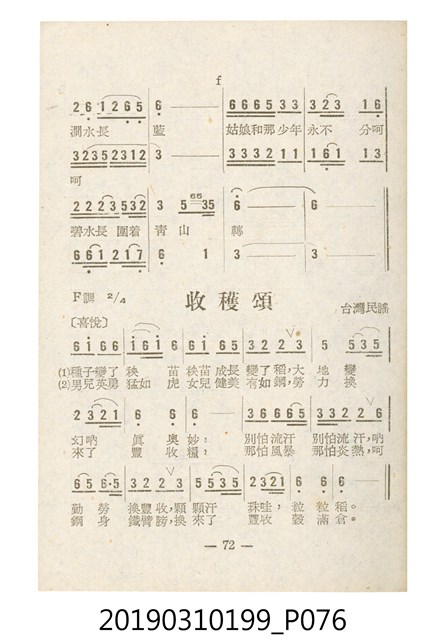 f
2 6 1 2 6 5 6 — 6 6 6 5 3 3 3 2 3 1 6
澗水長 藍 姑娘和那少年 永不 分呵
3 2 3 5 2 3 1 2 3 — 3 3 3 2 1 1 1 6 1 1 3
呵
2 2 2 3 5 3 2 3 5 35 6 — 6 —
碧水長 圍着 青 山 轉
6 6 1 2 1 7 6 6 1 3 — 3 —
F調 2/4 收穫頌 台灣民謠
〔喜悅〕
6 1 6 6 1 6 5 6 6 1 6 5 3 2 2 3 5 5 3
(1)種子變了 秧 苗 秧苗 成長 變了稻,大 地 變
(2)男兒英勇 猛如 虎 女兒 健美 有如鋼,勞 力 換
2 3 2 1 6 6 — 3 6 6 6 5 3 3 2 2 6
幻吶 眞 奧 妙: 別怕流汗 別怕流汗,吶
來了 豐 收 糧: 那怕風暴 那怕炎熱,呵
6 5 6 5 3 2 3 2 5 5 3 5 2 3 2 1 6 6 6 —
勤 勞 換豐收,顆顆汗 珠哇, 粒 粒 稻。
鋼 身 鐵臂膀,換來了 豐收 穀 滿 倉。
— 72 —
20190310199_P076